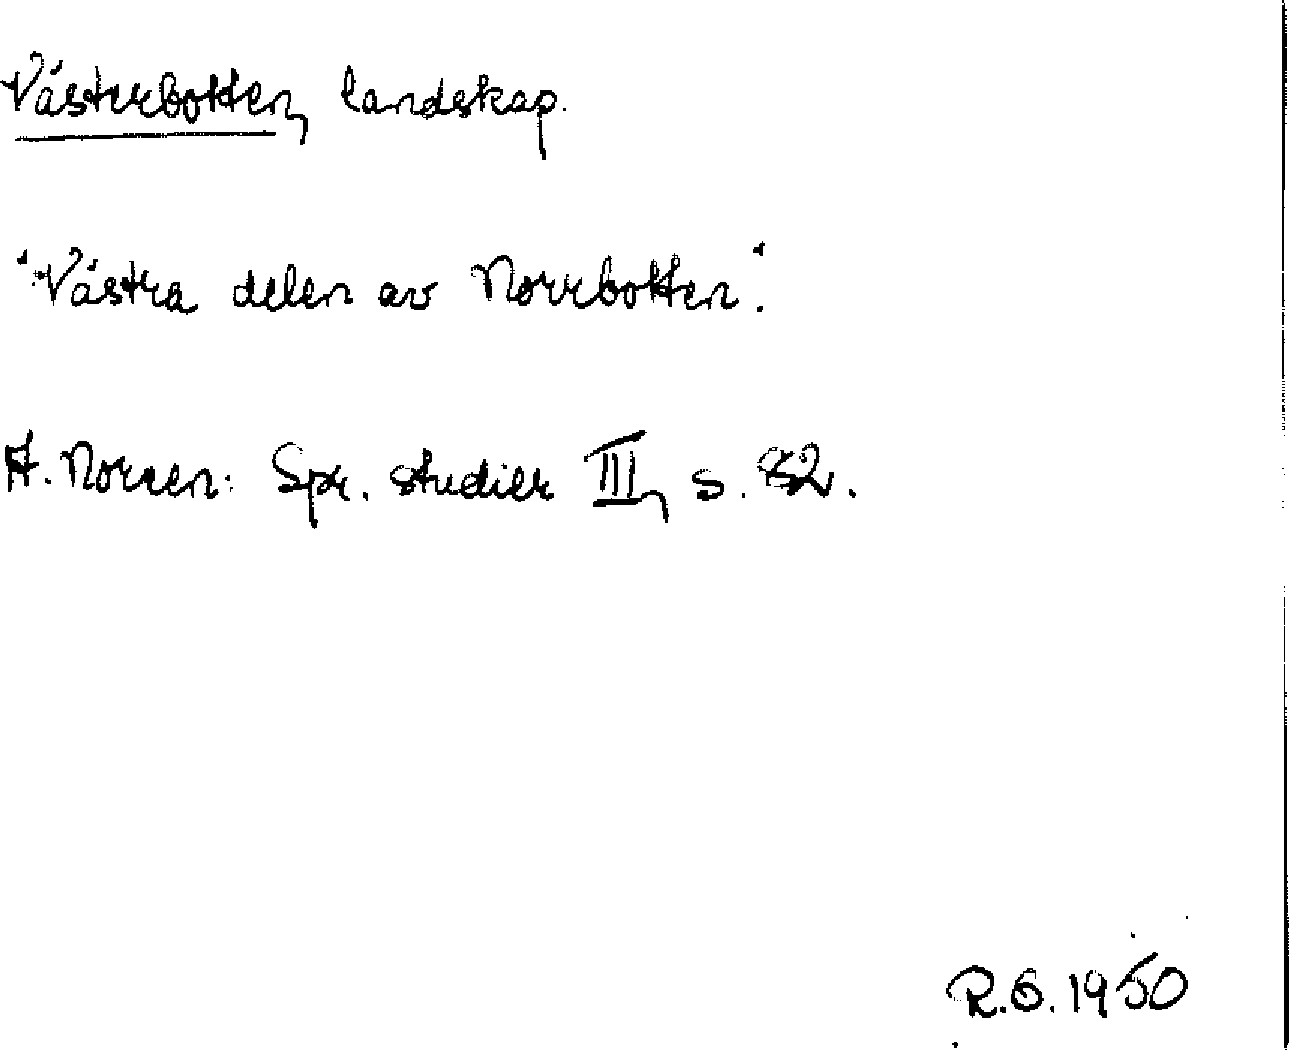 Västerbotten, landskap.
"Västra delen av Norrbotten".
A. Noreen: Spr. studier III, s. 82.
R.G. 1950